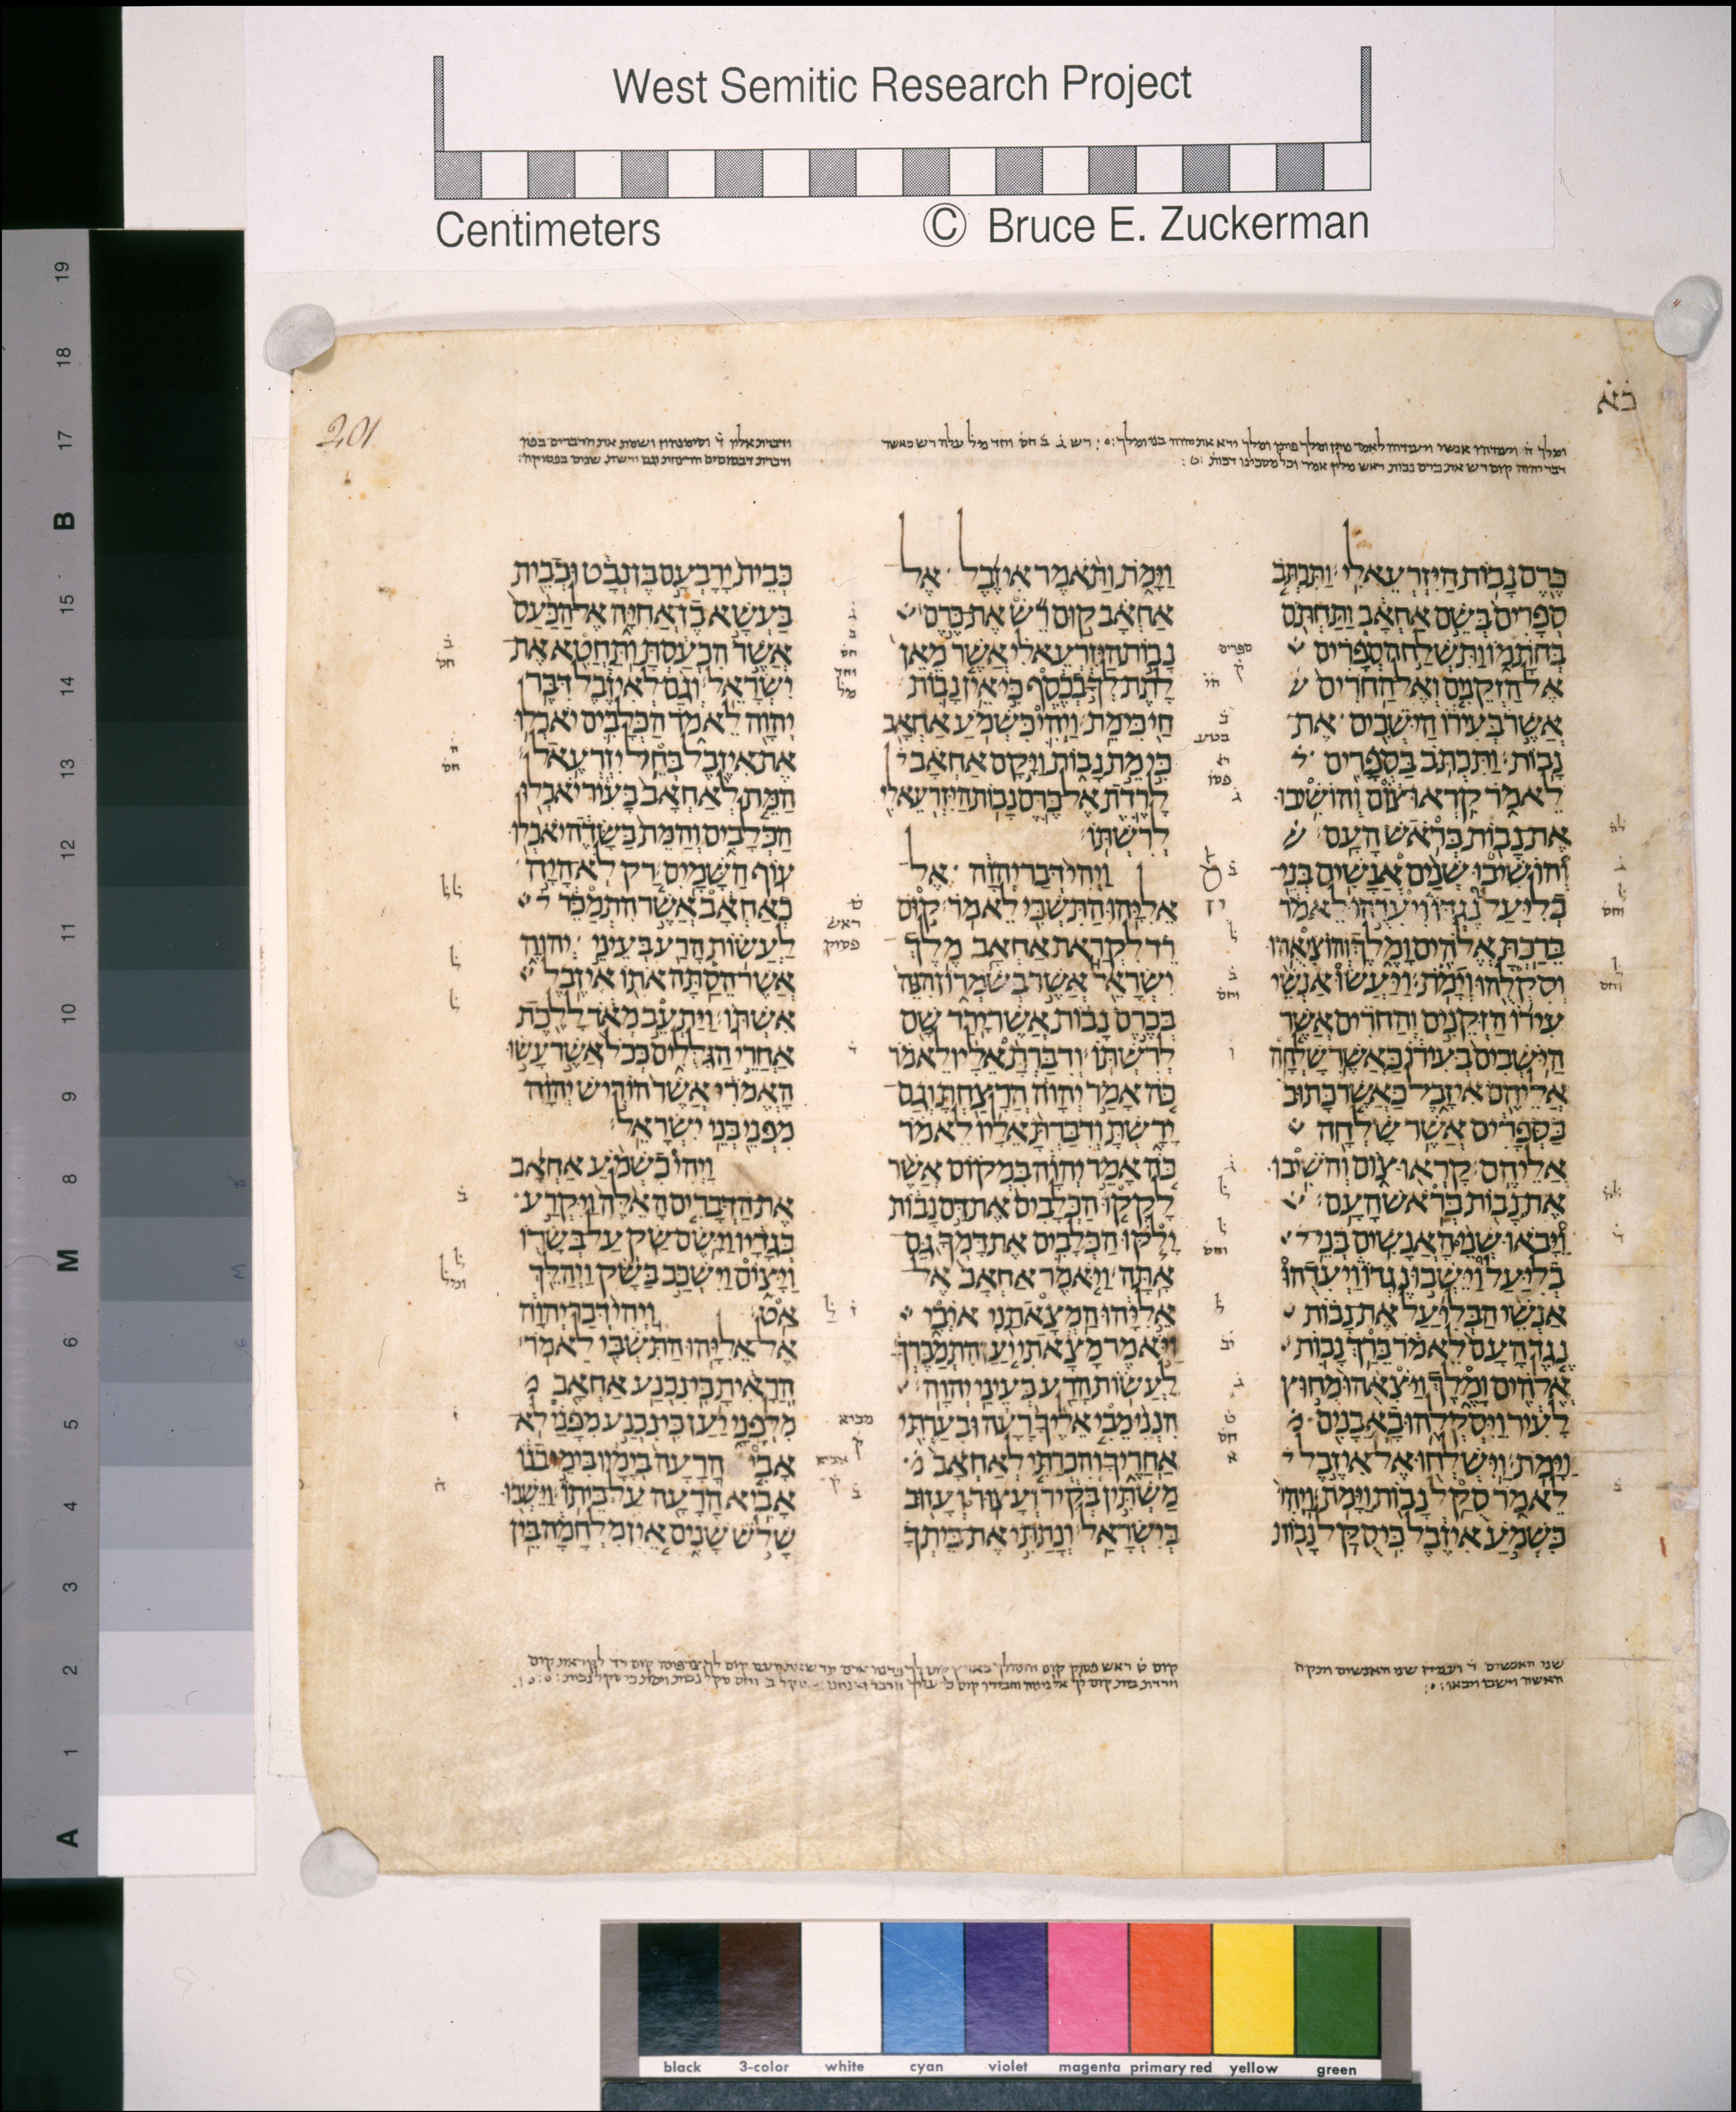 West Semitic Research Project
Centimeters © Bruce E. Zuckerman
201
כא
כֶּרֶם נָבוֹת הַיִּזְרְעֵאלִי׃ וַתִּכְתֹּב
סְפָרִים בְּשֵׁם אַחְאָב וַתַּחְתֹּם
בְּחֹתָמוֹ וַתִּשְׁלַח הַסְּפָרִים
אֶל הַזְּקֵנִים וְאֶל הַחֹרִים
אֲשֶׁר בְּעִירוֹ הַיֹּשְׁבִים אֶת
נָבוֹת׃ וַתִּכְתֹּב בַּסְּפָרִים
לֵאמֹר קִרְאוּ צוֹם וְהוֹשִׁיבוּ
אֶת נָבוֹת בְּרֹאשׁ הָעָם׃
וְהוֹשִׁיבוּ שְׁנַיִם אֲנָשִׁים בְּנֵי
בְלִיַּעַל נֶגְדּוֹ וִיעִדֻהוּ לֵאמֹר
בֵּרַכְתָּ אֱלֹהִים וָמֶלֶךְ וְהוֹצִיאֻהוּ
וְסִקְלֻהוּ וְיָמֹת׃ וַיַּעֲשׂוּ אַנְשֵׁי
עִירוֹ הַזְּקֵנִים וְהַחֹרִים אֲשֶׁר
הַיֹּשְׁבִים בְּעִירוֹ כַּאֲשֶׁר שָׁלְחָה
אֲלֵיהֶם אִיזָבֶל כַּאֲשֶׁר כָּתוּב
בַּסְּפָרִים אֲשֶׁר שָׁלְחָה
אֲלֵיהֶם׃ קָרְאוּ צוֹם וְהֹשִׁיבוּ
אֶת נָבוֹת בְּרֹאשׁ הָעָם׃
וַיָּבֹאוּ שְׁנֵי הָאֲנָשִׁים בְּנֵי
בְלִיַּעַל וַיֵּשְׁבוּ נֶגְדּוֹ וַיְעִדֻהוּ
אַנְשֵׁי הַבְּלִיַּעַל אֶת נָבוֹת
נֶגֶד הָעָם לֵאמֹר בֵּרַךְ נָבוֹת
אֱלֹהִים וָמֶלֶךְ וַיֹּצִאֻהוּ מִחוּץ
לָעִיר וַיִּסְקְלֻהוּ בָאֲבָנִים
וַיָּמֹת׃ וַיִּשְׁלְחוּ אֶל אִיזֶבֶל
לֵאמֹר סֻקַּל נָבוֹת וַיָּמֹת׃ וַיְהִי
כִּשְׁמֹעַ אִיזֶבֶל כִּי סֻקַּל נָבוֹת
וַיָּמֹת וַתֹּאמֶר אִיזֶבֶל אֶל
אַחְאָב קוּם רֵשׁ אֶת כֶּרֶם
נָבוֹת הַיִּזְרְעֵאלִי אֲשֶׁר מֵאֵן
לָתֶת לְךָ בְכֶסֶף כִּי אֵין נָבוֹת
חַי כִּי מֵת׃ וַיְהִי כִּשְׁמֹעַ אַחְאָב
כִּי מֵת נָבוֹת וַיָּקָם אַחְאָב
לָרֶדֶת אֶל כֶּרֶם נָבוֹת הַיִּזְרְעֵאלִי
לְרִשְׁתּוֹ׃
וַיְהִי דְּבַר יְהוָה אֶל
אֵלִיָּהוּ הַתִּשְׁבִּי לֵאמֹר׃ קוּם
רֵד לִקְרַאת אַחְאָב מֶלֶךְ
יִשְׂרָאֵל אֲשֶׁר בְּשֹׁמְרוֹן הִנֵּה
בְּכֶרֶם נָבוֹת אֲשֶׁר יָרַד שָׁם
לְרִשְׁתּוֹ׃ וְדִבַּרְתָּ אֵלָיו לֵאמֹר
כֹּה אָמַר יְהוָה הֲרָצַחְתָּ וְגַם
יָרָשְׁתָּ וְדִבַּרְתָּ אֵלָיו לֵאמֹר
כֹּה אָמַר יְהוָה בִּמְקוֹם אֲשֶׁר
לָקְקוּ הַכְּלָבִים אֶת דַּם נָבוֹת
יָלֹקּוּ הַכְּלָבִים אֶת דָּמְךָ גַּם
אָתָּה׃ וַיֹּאמֶר אַחְאָב אֶל
אֵלִיָּהוּ הַמְצָאתַנִי אֹיְבִי
וַיֹּאמֶר מָצָאתִי יַעַן הִתְמַכֶּרְךָ
לַעֲשׂוֹת הָרַע בְּעֵינֵי יְהוָה׃
הִנְנִי מֵבִי אֵלֶיךָ רָעָה וּבִעַרְתִּי
אַחֲרֶיךָ וְהִכְרַתִּי לְאַחְאָב
מַשְׁתִּין בְּקִיר וְעָצוּר וְעָזוּב
בְּיִשְׂרָאֵל׃ וְנָתַתִּי אֶת בֵּיתְךָ
כְּבֵית יָרָבְעָם בֶּן נְבָט וּכְבֵית
בַּעְשָׁא בֶן אֲחִיָּה אֶל הַכַּעַס
אֲשֶׁר הִכְעַסְתָּ וַתַּחֲטִא אֶת
יִשְׂרָאֵל׃ וְגַם לְאִיזֶבֶל דִּבֶּר
יְהוָה לֵאמֹר הַכְּלָבִים יֹאכְלוּ
אֶת אִיזֶבֶל בְּחֵל יִזְרְעֶאל׃
הַמֵּת לְאַחְאָב בָּעִיר יֹאכְלוּ
הַכְּלָבִים וְהַמֵּת בַּשָּׂדֶה יֹאכְלוּ
עוֹף הַשָּׁמָיִם׃ רַק לֹא הָיָה
כְאַחְאָב אֲשֶׁר הִתְמַכֵּר
לַעֲשׂוֹת הָרַע בְּעֵינֵי יְהוָה
אֲשֶׁר הֵסַתָּה אֹתוֹ אִיזֶבֶל
אִשְׁתּוֹ׃ וַיַּתְעֵב מְאֹד לָלֶכֶת
אַחֲרֵי הַגִּלֻּלִים כְּכֹל אֲשֶׁר עָשׂוּ
הָאֱמֹרִי אֲשֶׁר הוֹרִישׁ יְהוָה
מִפְּנֵי בְּנֵי יִשְׂרָאֵל׃
וַיְהִי כִשְׁמֹעַ אַחְאָב
אֶת הַדְּבָרִים הָאֵלֶּה וַיִּקְרַע
בְּגָדָיו וַיָּשֶׂם שַׂק עַל בְּשָׂרוֹ
וַיָּצוֹם וַיִּשְׁכַּב בַּשָּׂק וַיְהַלֵּךְ
אַט׃ וַיְהִי דְּבַר יְהוָה
אֶל אֵלִיָּהוּ הַתִּשְׁבִּי לֵאמֹר׃
הֲרָאִיתָ כִּי נִכְנַע אַחְאָב
מִלְּפָנָי יַעַן כִּי נִכְנַע מִפָּנַי לֹא
אָבִי הָרָעָה בְּיָמָיו בִּימֵי בְנוֹ
אָבִיא הָרָעָה עַל בֵּיתוֹ׃ וַיֵּשְׁבוּ
שָׁלֹשׁ שָׁנִים אֵין מִלְחָמָה בֵּין
black 3-color white cyan violet magenta primary red yellow green
19
18
17
B
16
15
14
13
12
11
10
9
8
M
7
6
5
4
3
2
1
A